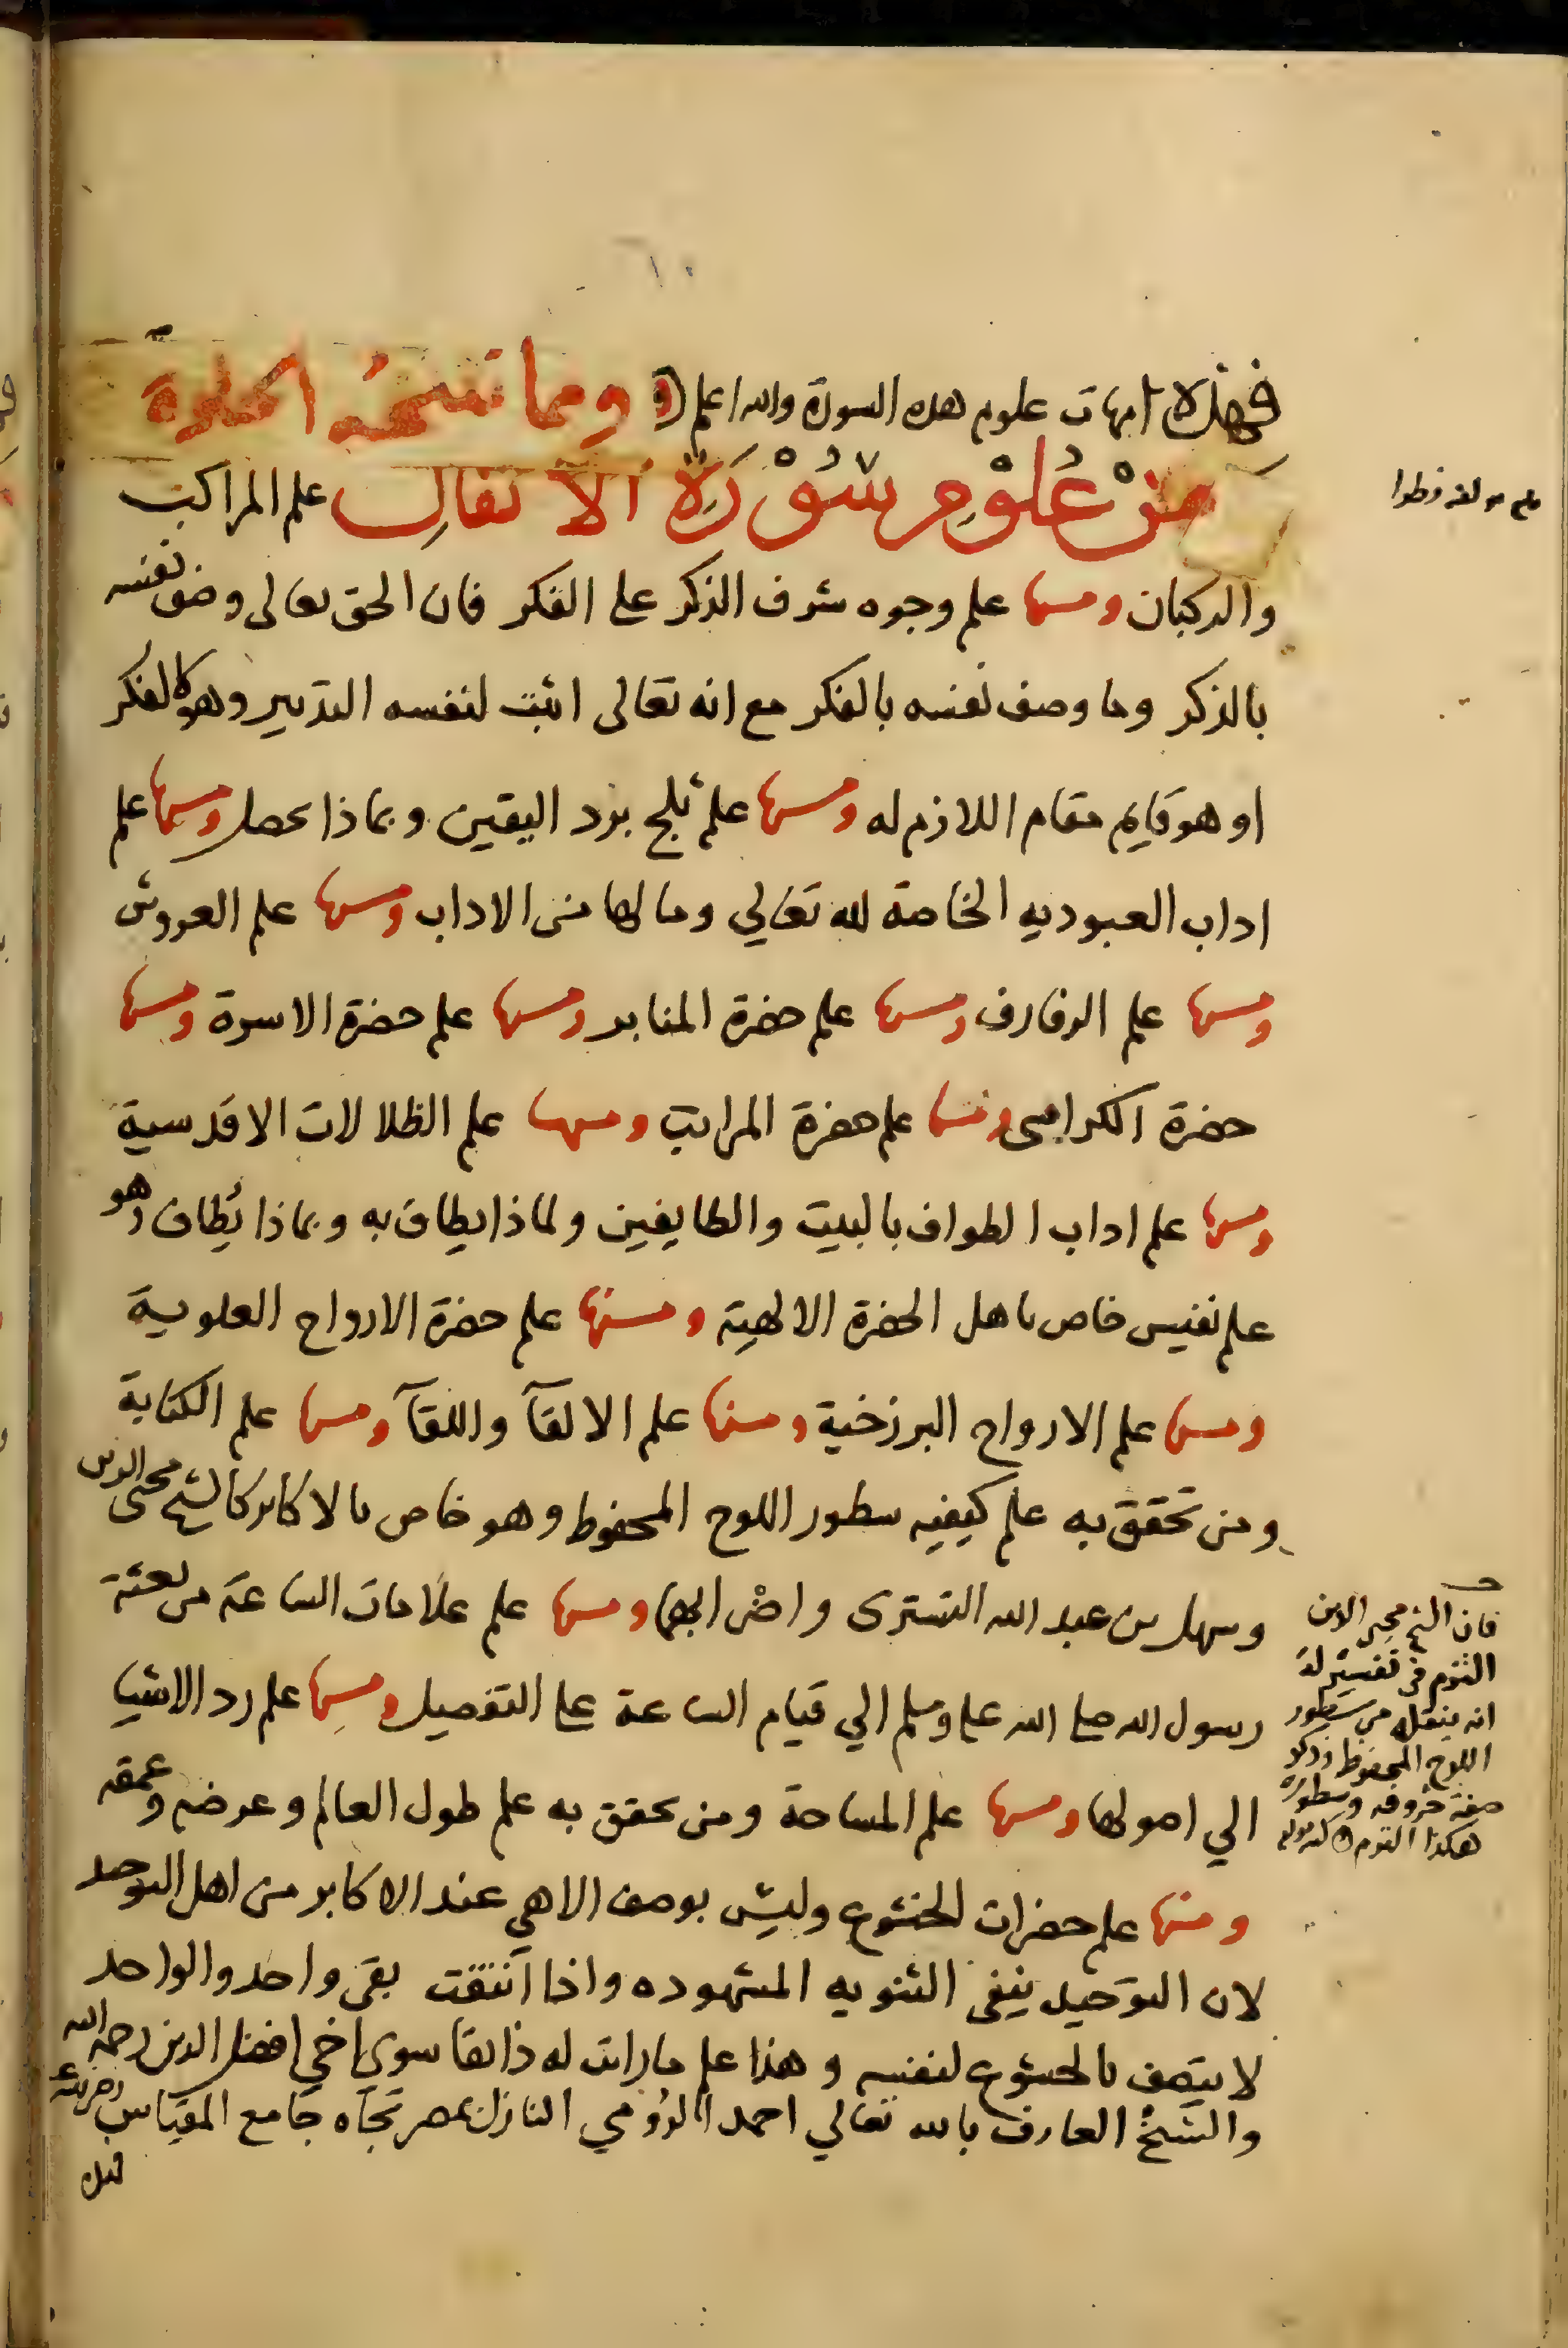 فهذه امهات علوم هذه السورة والله اعلم ومما تنتجه الخلوة
من علوم سورة الانفال علم المراكب
والركبان ومنها علم وجوه شرف الذكر على الفكر فان الحق تعالى وصف نفسه
بالذكر وما وصف نفسه بالفكر مع انه تعالى اثبت لنفسه التدبير وهو كالفكر
او هو قايم مقام اللازم له ومنها علم ثلج برد اليقين وبماذا يحصل ومنها علم
اداب العبوديه الخاصة لله تعالي وما لها من الاداب ومنها علم العروش
ومنها علم الرفارف ومنها علم حضرة المنابر ومنها علم حضرة الاسرة ومنها
حضرة الكراسى ومنها علم حضرة المراتب ومنها علم الظلالات الاقدسية
ومنها علم اداب الطواف بالبيت والطايفين ولماذا يطاف به وبماذا يُطاف وهو
علم نفيس خاص باهل الحضرة الالهية ومنها علم حضرة الارواح العلوية
ومنها علم الارواح البرزخية ومنها علم الالقآ واللقآ ومنها علم الكتابة
ومن تحقق به علم كيفيه سطور اللوح المحفوظ وهو خاص بالاكابر كالشيخ محى الدين
وسهل بن عبد الله التسترى واضرابهما ومنها علم علامات الساعة من بعثة
رسول الله صلى الله عليه وسلم الي قيام الساعة على التفصيل ومنها علم رد الاشيا
الي اصولها ومنها علم المساحة ومن تحقق به علم طول العالم وعرضه وعمقه
ومنها علم حضرات الخشوع وليس بوصف الاهي عند الاكابر من اهل التوحيد
لان التوحيد ينفى الثنويه المشهوده واذا انتفت بقى واحد والواحد
لا يتصف بالخشوع لنفسه وهذا علم ما رايت له ذائقا سوى اخي افضل الدين رحمه الله
والشيخ العارف بالله تعالي احمد الرومي النازل بمصر تجاه جامع المقياس
فان الشيخ محى الدين
التزم فى تفسير له
انه ينقله من سطور
اللوح المحفوظ وذكر
صفة حروفه وسطوره
هكذا